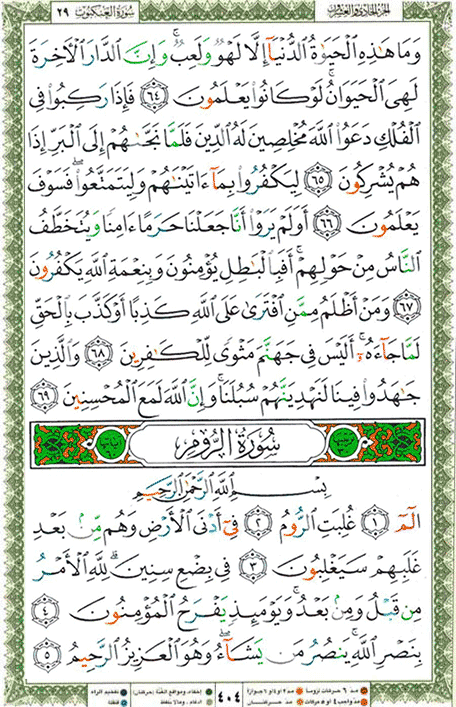 سُورَةُ العَنكَبُوتِ ٢٩
الجزء الحادي والعشرون
وَمَا هَـٰذِهِ ٱلْحَيَوٰةُ ٱلدُّنْيَآ إِلَّا لَهْوٌ وَلَعِبٌ ۚ وَإِنَّ ٱلدَّارَ ٱلْـَٔاخِرَةَ
لَهِىَ ٱلْحَيَوَانُ ۚ لَوْ كَانُوا۟ يَعْلَمُونَ ٦٤ فَإِذَا رَكِبُوا۟ فِى
ٱلْفُلْكِ دَعَوُا۟ ٱللَّهَ مُخْلِصِينَ لَهُ ٱلدِّينَ فَلَمَّا نَجَّىٰهُمْ إِلَى ٱلْبَرِّ إِذَا
هُمْ يُشْرِكُونَ ٦٥ لِيَكْفُرُوا۟ بِمَآ ءَاتَيْنَـٰهُمْ وَلِيَتَمَتَّعُوا۟ ۖ فَسَوْفَ
يَعْلَمُونَ ٦٦ أَوَلَمْ يَرَوْا۟ أَنَّا جَعَلْنَا حَرَمًا ءَامِنًا وَيُتَخَطَّفُ
ٱلنَّاسُ مِنْ حَوْلِهِمْ ۚ أَفَبِٱلْبَـٰطِلِ يُؤْمِنُونَ وَبِنِعْمَةِ ٱللَّهِ يَكْفُرُونَ
٦٧ وَمَنْ أَظْلَمُ مِمَّنِ ٱفْتَرَىٰ عَلَى ٱللَّهِ كَذِبًا أَوْ كَذَّبَ بِٱلْحَقِّ
لَمَّا جَآءَهُۥٓ ۚ أَلَيْسَ فِى جَهَنَّمَ مَثْوًى لِّلْكَـٰفِرِينَ ٦٨ وَٱلَّذِينَ
جَـٰهَدُوا۟ فِينَا لَنَهْدِيَنَّهُمْ سُبُلَنَا ۚ وَإِنَّ ٱللَّهَ لَمَعَ ٱلْمُحْسِنِينَ ٦٩
سُورَةُ الرُّومِ
بِسْمِ ٱللَّهِ ٱلرَّحْمَـٰنِ ٱلرَّحِيمِ
الٓمٓ ١ غُلِبَتِ ٱلرُّومُ ٢ فِىٓ أَدْنَى ٱلْأَرْضِ وَهُم مِّنۢ بَعْدِ
غَلَبِهِمْ سَيَغْلِبُونَ ٣ فِى بِضْعِ سِنِينَ ۗ لِلَّهِ ٱلْأَمْرُ
مِن قَبْلُ وَمِنۢ بَعْدُ ۚ وَيَوْمَئِذٍ يَفْرَحُ ٱلْمُؤْمِنُونَ ٤
بِنَصْرِ ٱللَّهِ ۚ يَنصُرُ مَن يَشَآءُ ۖ وَهُوَ ٱلْعَزِيزُ ٱلرَّحِيمُ ٥
٤٠٤